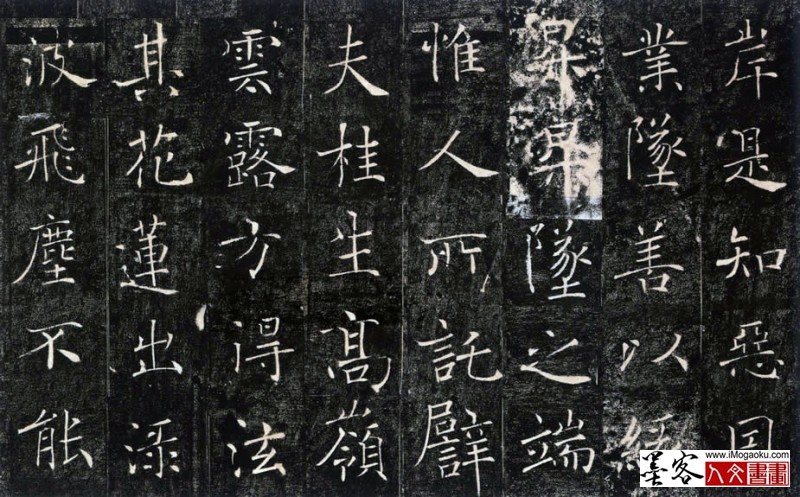 岸是知惡因
業墜善以緣
昇昇墜之端
惟人所託譬
夫桂生髙嶺
雲露方得泫
其花蓮出淥
波飛塵不能
www.iMogaoku.com
墨客人文書畫